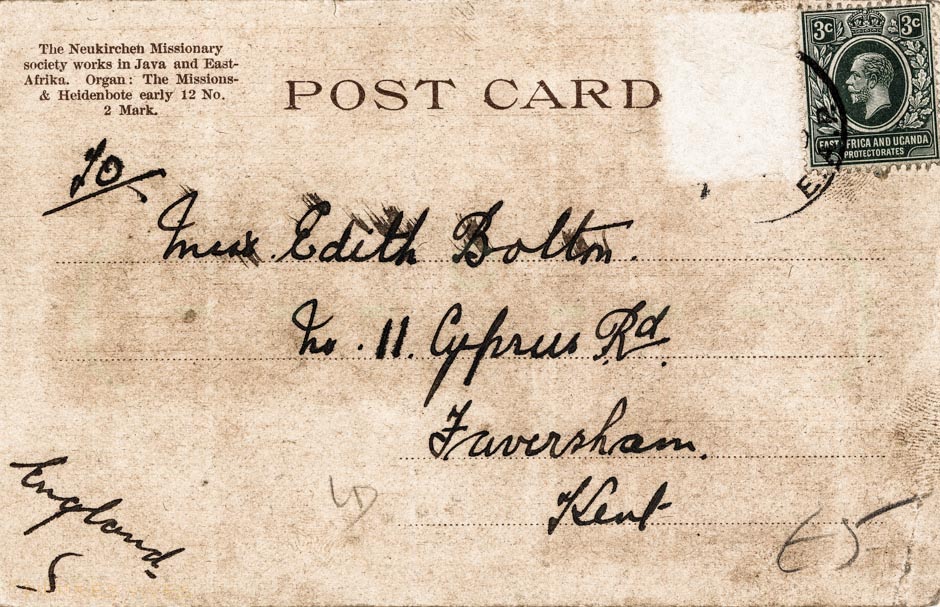 The Neukirchen Missionary
society works in Java and East-
Afrika. Organ: The Missions-
& Heidenbote early 12 No.
2 Mark.
POST CARD
3c 3c
EAST AFRICA AND UGANDA
PROTECTORATES
To
Miss Edith Bolton.
No. 11. Cyprus Rd.
Faversham.
Kent
England.